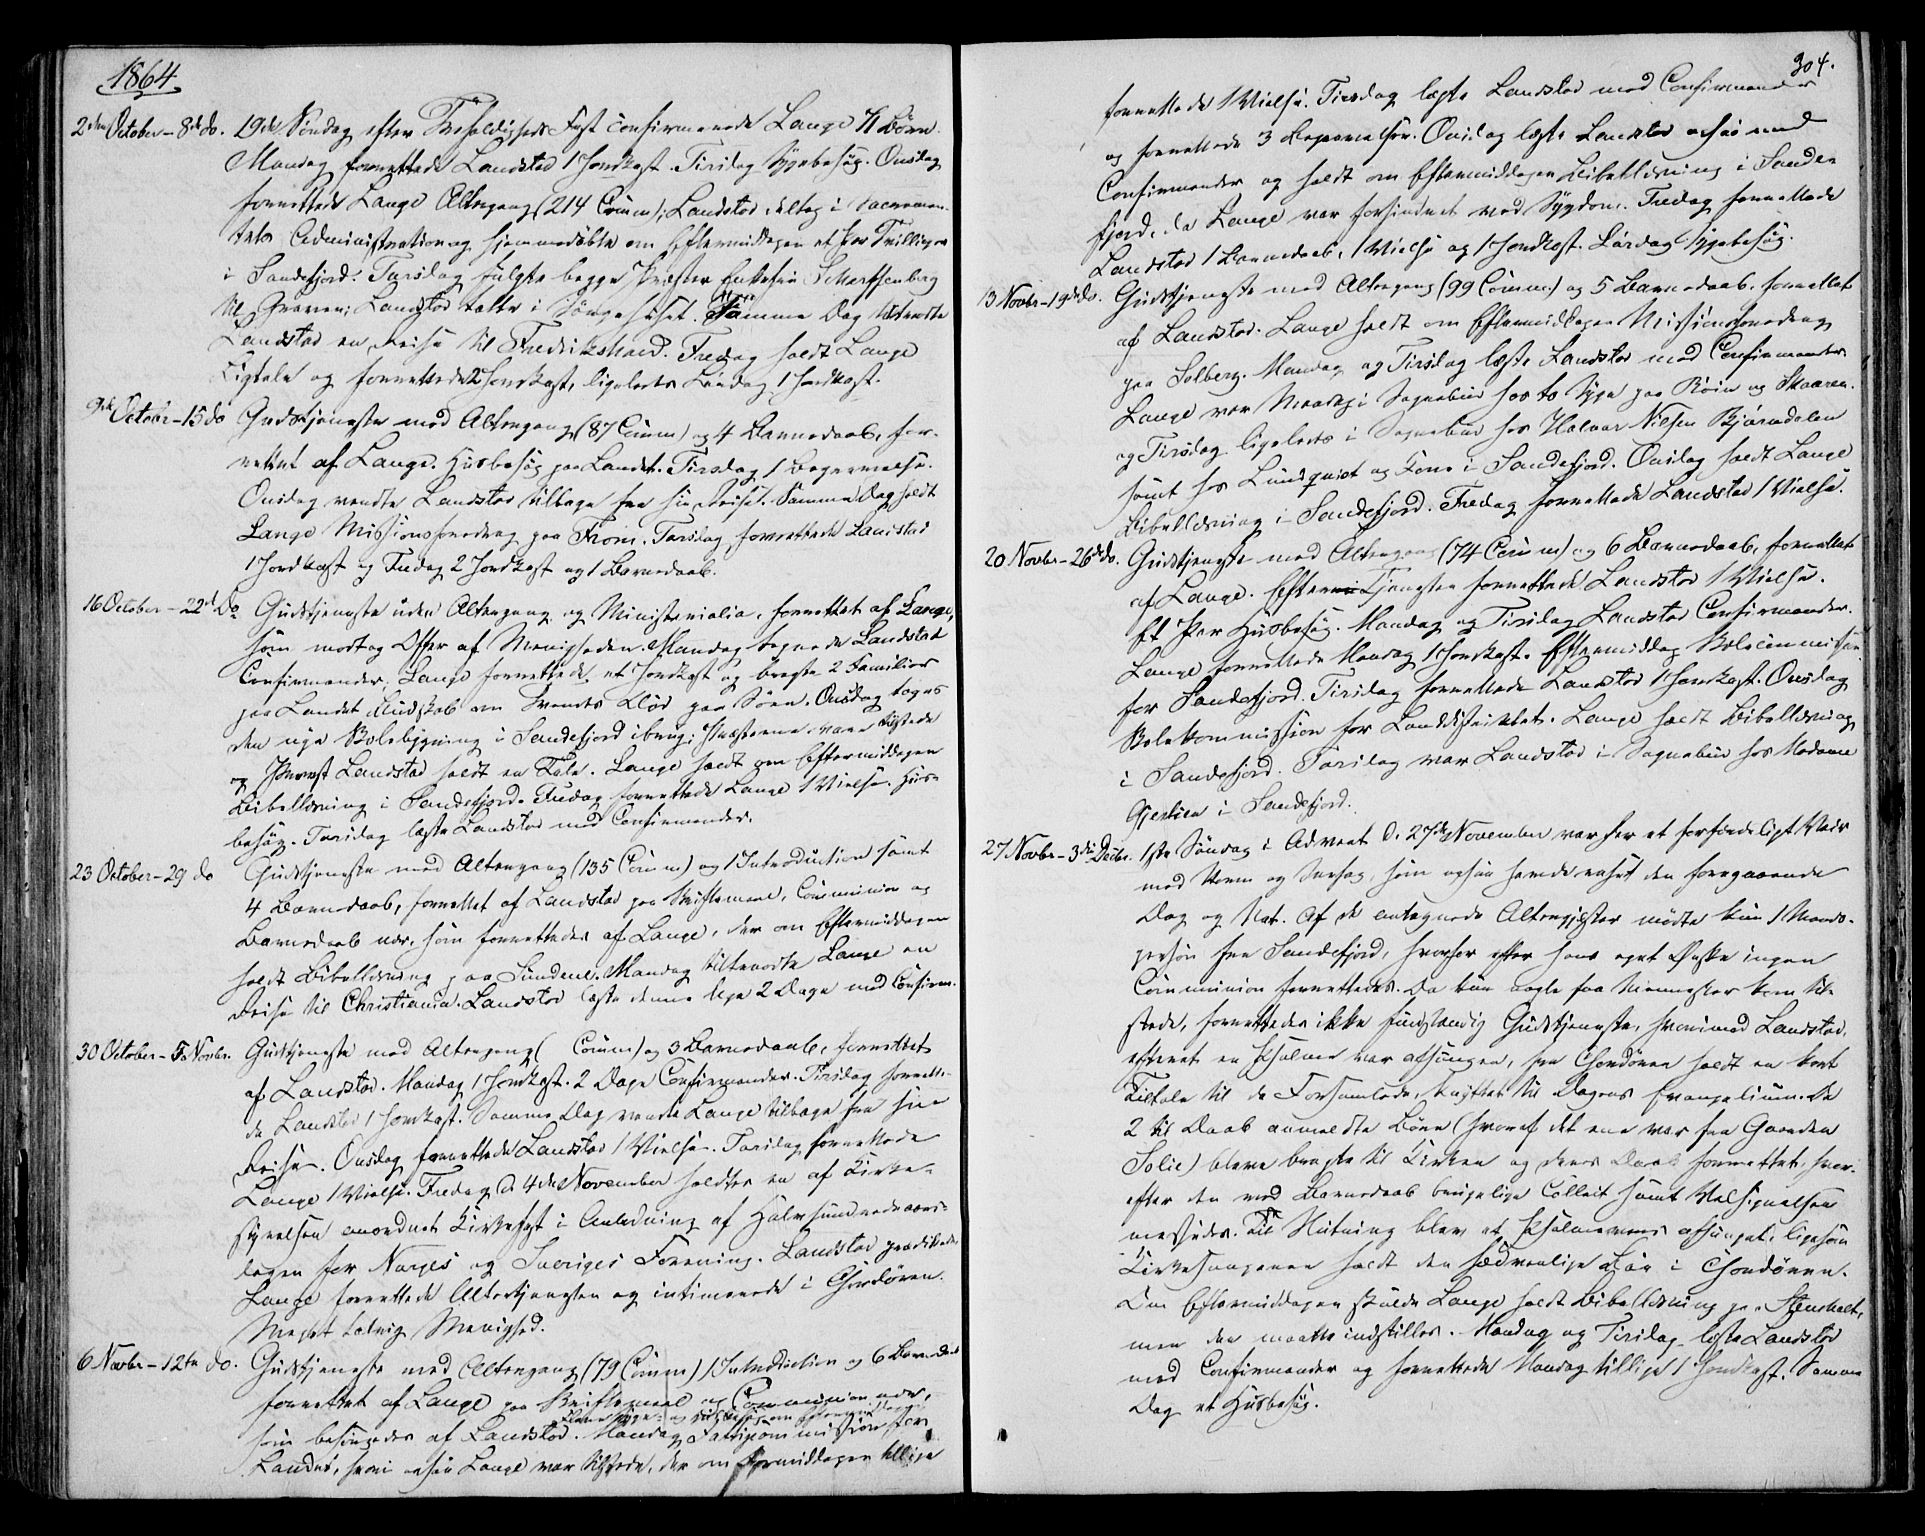 1864
2den October – 8de do. 19de Søndag efter Trefoldigheds Fest confirmerede Lange 71 Børn.
Mandag forrettede Landstad 1 Jordkast. Tirsdag Sygebesøg. Onsdag
forrettede Lange Altergang (214 Comm); Landstad deltog i Sacramen-
tets Administration og hjemmedøbte om Eftermiddagen et Par Tvillinger
i Sandefjord. Torsdag fulgte begge Præster
til Graven; Landstad talte i Sørgehuset. Samme Dag tiltraadte
Landstad en Reise til Frederikshald. Fredag holdt Lange
Ligtale og forrettede 2 Jordkast, ligeledes Lørdag 1 Jordkast.
9de October – 15 do Gudstjeneste med Altergang (87 Comm) og 4 Barnedaab, for-
rettet af Lange. Husbesøg paa Landet. Tirsdag 1 Begravelse.
Onsdag vendte Landstad tilbage fra sin Reise. Samme Dag holdt
Lange Missionsforedrag paa Fron. Torsdag forrettede Landstad
1 Jordkast og Fredag 2 Jordkast og 1 Barnedaab.
16 October – 22d Do Gudstjeneste uden Altergang og Ministerialia, forrettet af Lange,
som modtog Offer af Menigheden. Mandag begyndte Landstad
Confirmander. Lange forrettede et Jordkast og bragte 2 Familier
paa Landet Budskab om Død paa Søen. Onsdag toges
den nye Skolebygning i Sandefjord ibrug; Præsterne vare tilstede
og Provst Landstad holdt en Tale. Lange holdt om Eftermiddagen
Bibellæsning i Sandefjord. Fredag forrettede Lange 1 Vielse. Hus-
besøg. Torsdag læste Landstad med Confirmander.
23 October – 29 do Gudstjeneste med Altergang (135 Comm) og 1 Introduction samt
4 Barnedaab, forrettet af Landstad paa Skriftemaal, Communion og
Barnedaab nær, som forrettedes af Lange, der om Eftermiddagen
holdt Bibellæsning paa Sundene. Mandag tiltraadte Lange en
Reise til Christiania. Landstad læste denne Uge 2 Dage med Confirm.
30 October – 5 Novbr. Gudstjeneste med Altergang ( Comm) og 3 Barnedaab, forrettet
af Landstad. Mandag 1 Jordkast. 2 Dage Confirmander. Tirsdag forrette-
de Landstad 1 Jordkast. Samme Dag vendte Lange tilbage fra sin
Reise. Onsdag forrettede Landstad 1 Vielse. Torsdag forrettede
Lange 1 Vielse. Fredag d. 4de November holdtes en af Kirke-
styrelsen anordnet Kirkefest i Anledning af Halvhundredaars-
dagen for Norges og Sveriges Forening. Landstad prædikede,
Lange forrettede Altertjenesten og intimerede i Chordøren.
Meget talrig Menighed.
6 Novbr – 12te do. Gudstjeneste med Altergang (79 Comm) 1 Introduction og 6 Barnedaab
forrettet af Lange paa Skriftemaal og Communion nær,
som besørgedes af Landstad. Mandag Fattigcommission for
Landet, hvori ogsaa Lange var tilstede, der om Formiddagen tillige
304.
forrettede 1 Vielse. Tirsdag læste Landstad med Confirmander
og forrettede 3 Begravelser. Onsdag læste Landstad ogsaa med
Confirmander og holdt om Eftermiddagen Bibellæsning i Sande-
fjord, da Lange var forhindret ved Sygdom. Fredag forrettede
Landstad 1 Barnedaab, 1 Vielse og 1 Jordkast. Lørdag Sygebesøg.
13 Novbr – 19de do. Gudstjeneste med Altergang (99 Comm) og 5 Barnedaab, forrettet
af Landstad. Lange holdt om Eftermiddagen Missionsforedrag
paa Solberg. Mandag og Tirsdag læste Landstad med Confirmander
Lange var Mandag i Sognebud hos to Syge paa og
og Tirsdag ligeledes i Sognebud hos Halvor Nielsen Bjørndalen
samt hos Lundquist og Kone i Sandefjord. Onsdag holdt Lange
Bibellæsning i Sandefjord. Fredag forrettede Landstad 1 Vielse.
20 Novbr – 26de do. Gudstjeneste med Altergang (74 Comm) og 6 Barnedaab, forrettet
af Lange. Efter Tjenesten forrettede Landstad 1 Vielse.
Et Par Husbesøg. Mandag og Tirsdag Landstad Confirmander.
Lange forrettede Mandag 1 Jordkast. Eftermiddag Skolecommission
for Sandefjord. Tirsdag forrettede Landstad 1 Jordkast. Onsdag
Skolekommission for Landdistriktet. Lange holdt Bibellæsning
i Sandefjord. Torsdag var Landstad i Sognebud hos Madame
i Sandefjord.
27 Novbr – 3die Decbr. 1ste Søndag i Advent d. 27de November var her et forfærdeligt Veir
med Storm og Snefog, som ogsaa havde raset den foregaaende
Dag og Nat. Af de antegnede Altergjæster mødte kun 1 Mands-
person fra Sandefjord, hvorfor efter hans eget Ønske ingen
Communion forrettedes. Da kun nogle faa Mennesker kom til-
stede, forrettedes ikke fuldstændig Gudstjeneste, hvorimod Landstad,
efterat en Psalme var afsungen, fra Chordøren holdt en kort
Tiltale til de Forsamlede, knyttet til Dagens Evangelium. De
2 til Daab anmeldte Børn (hvoraf det ene var fra Gaarden
Solie) bleve bragte til Kirken og deres Daab forrettet, hvor-
efter den ved Barnedaab brugelige Collect samt Velsignelsen
messedes. Til Slutning blev et Psalmevers afsunget, ligesom
Kirkesangeren holdt den sædvanlige Bøn i Chordøren.
Om Eftermiddagen skulde Lange holdt Bibellæsning paa Stensholt,
men den maatte indstilles. Mandag og Tirsdag læste Landstad
med Confirmander og forrettede Mandag tillige 1 Jordkast. Samme
Dag et Husbesøg.